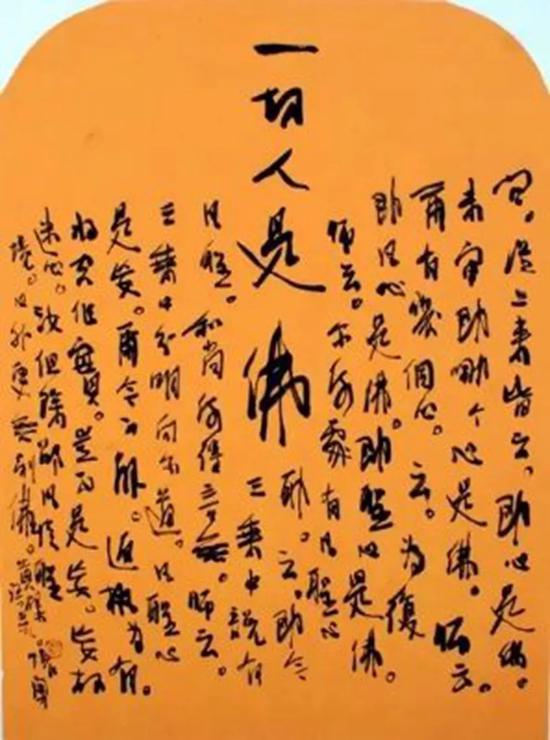 一切人是佛
问。從上来皆云。即心是佛。
未审即哪个心是佛。师云。
爾有幾個心。云。为復
即凡心是佛。即聖心是佛。
师云。尔何處有凡聖心
耶。云。即今
三乘中說有
凡聖。和尚何得言無。师云。
三乘中分明向尔道。凡聖心
是妄。爾今不解。返執为有。
将空作實。豈不是妄。妄故
迷心。汝但除却凡情聖
境。心外更無别佛。黄檗